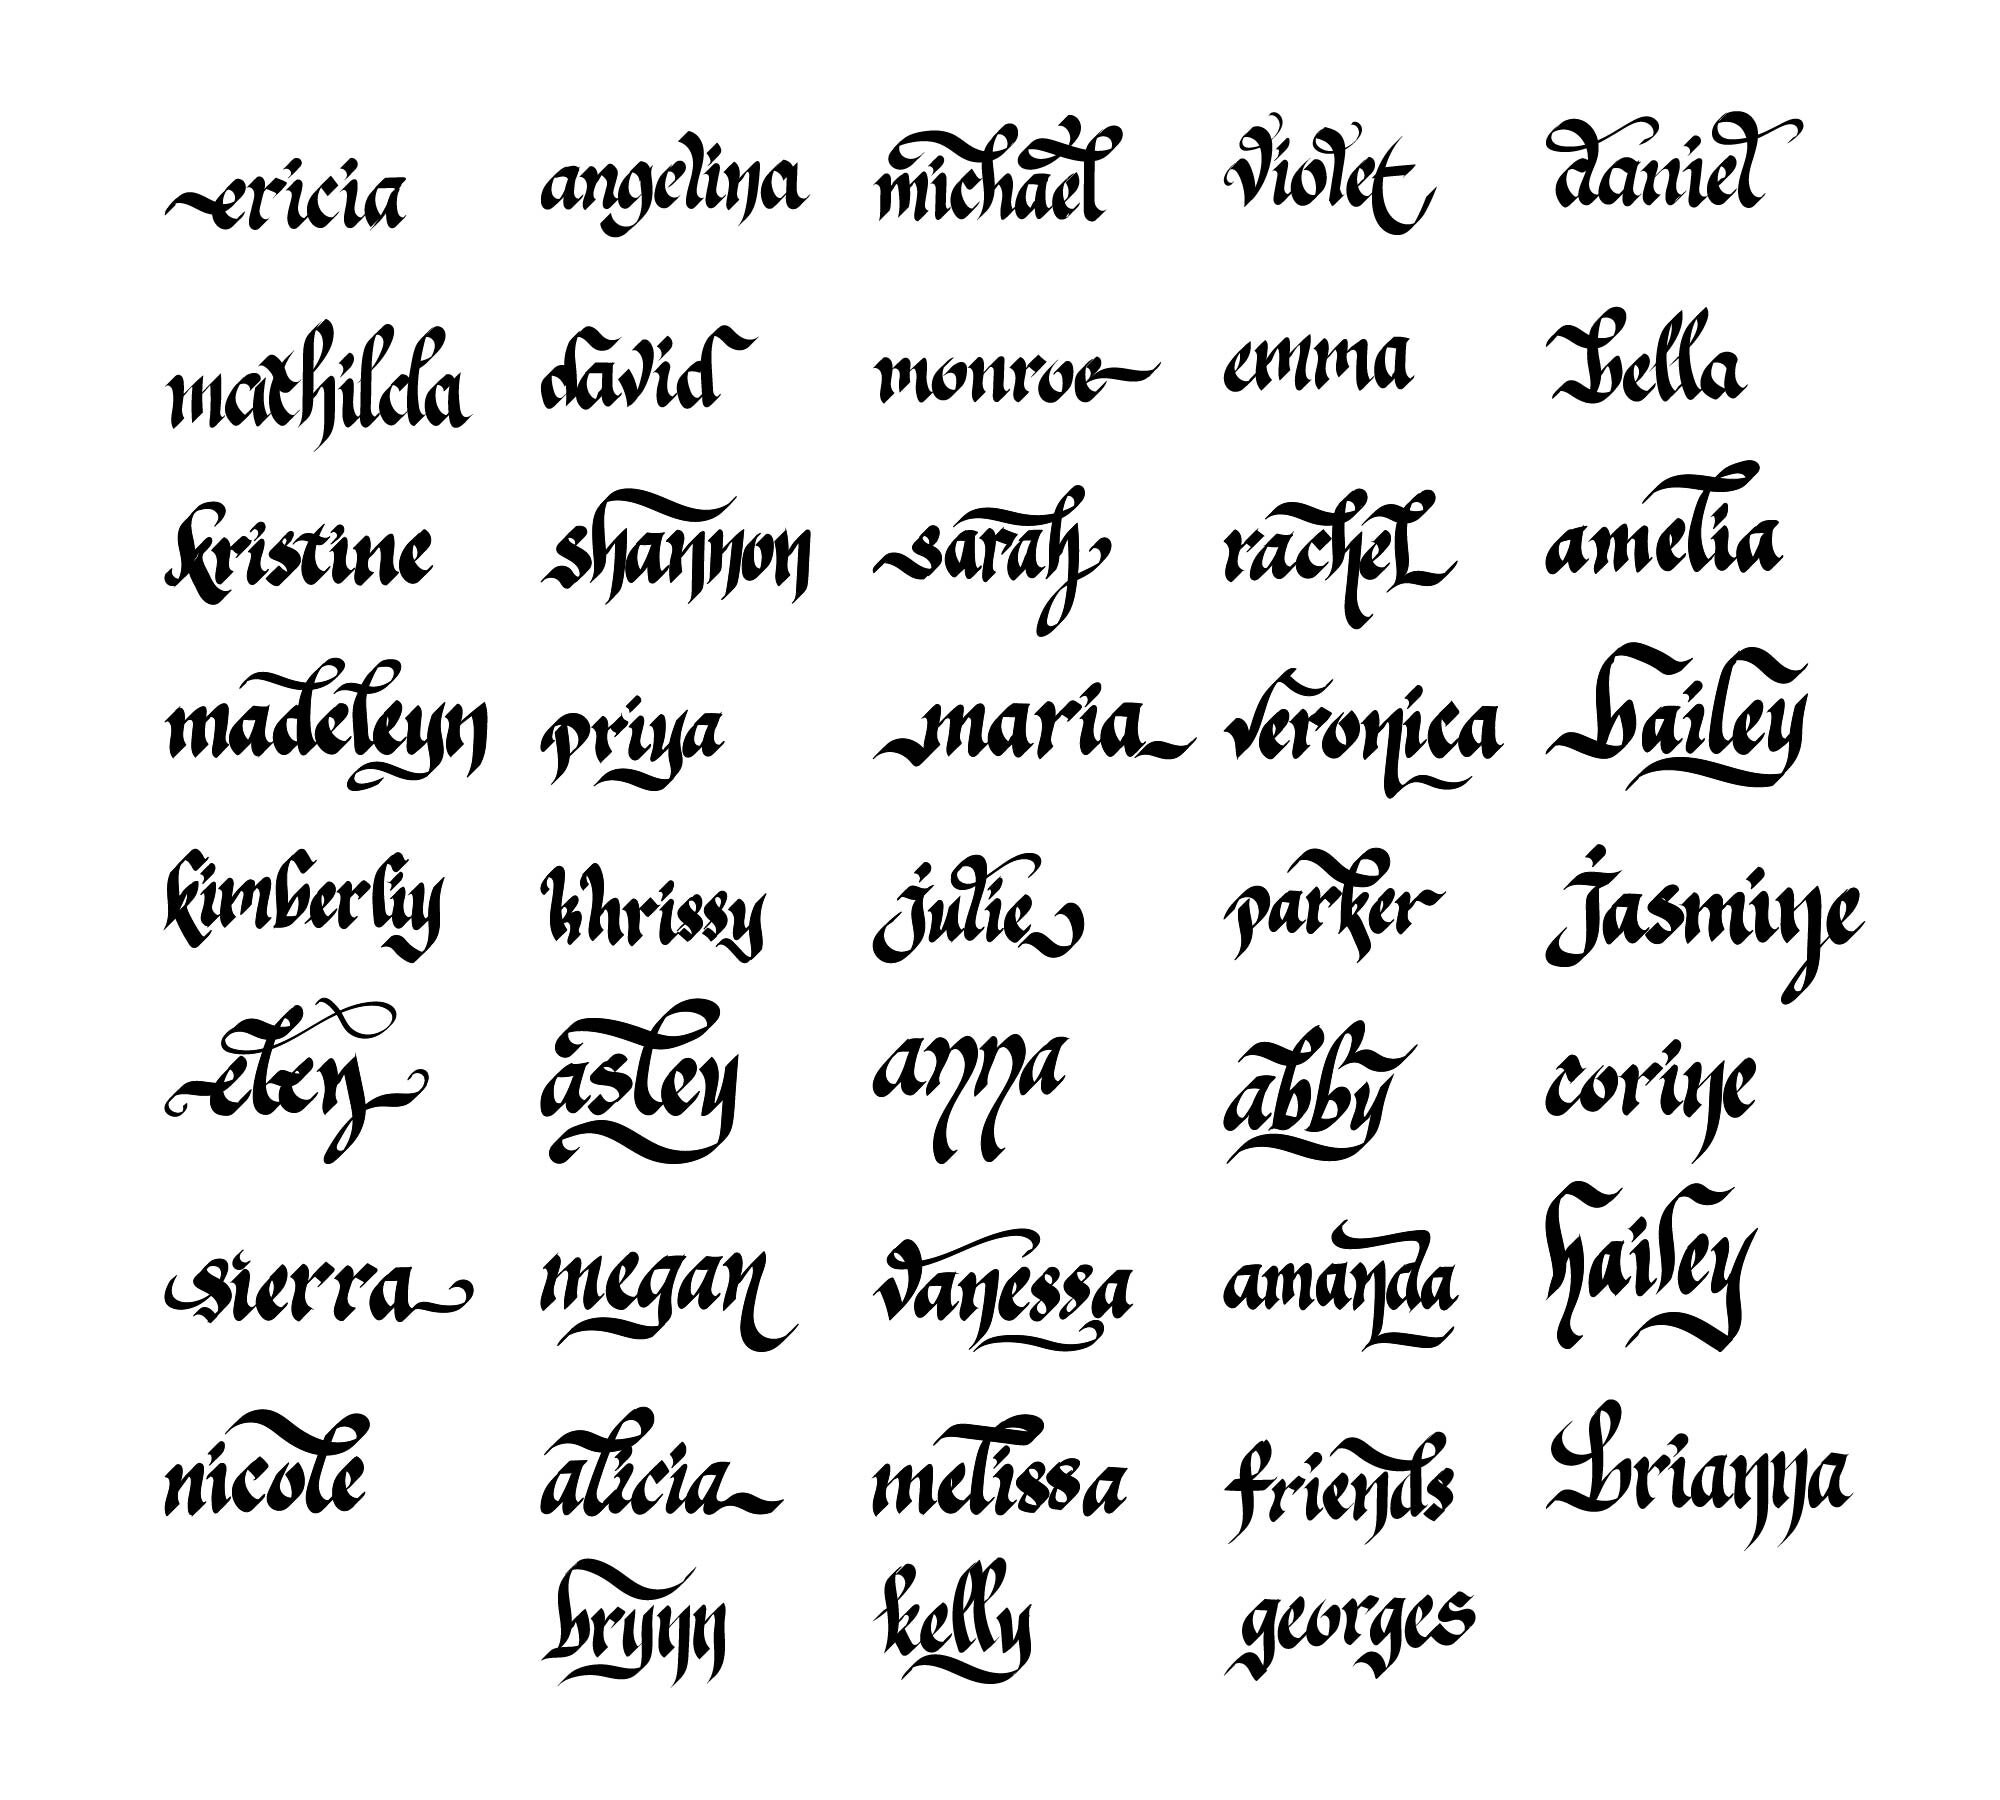 ericia angelina michael violet daniel
mathilda david monroe emma bella
kristine shannon sarah rachel amelia
madeleyn priya maria veronica hailey
kimberly khrissy julie parker jasmine
anna abby
sierra megan vanessa amanda hailey
nicole alicia melissa friends brianna
brynn kelly georges